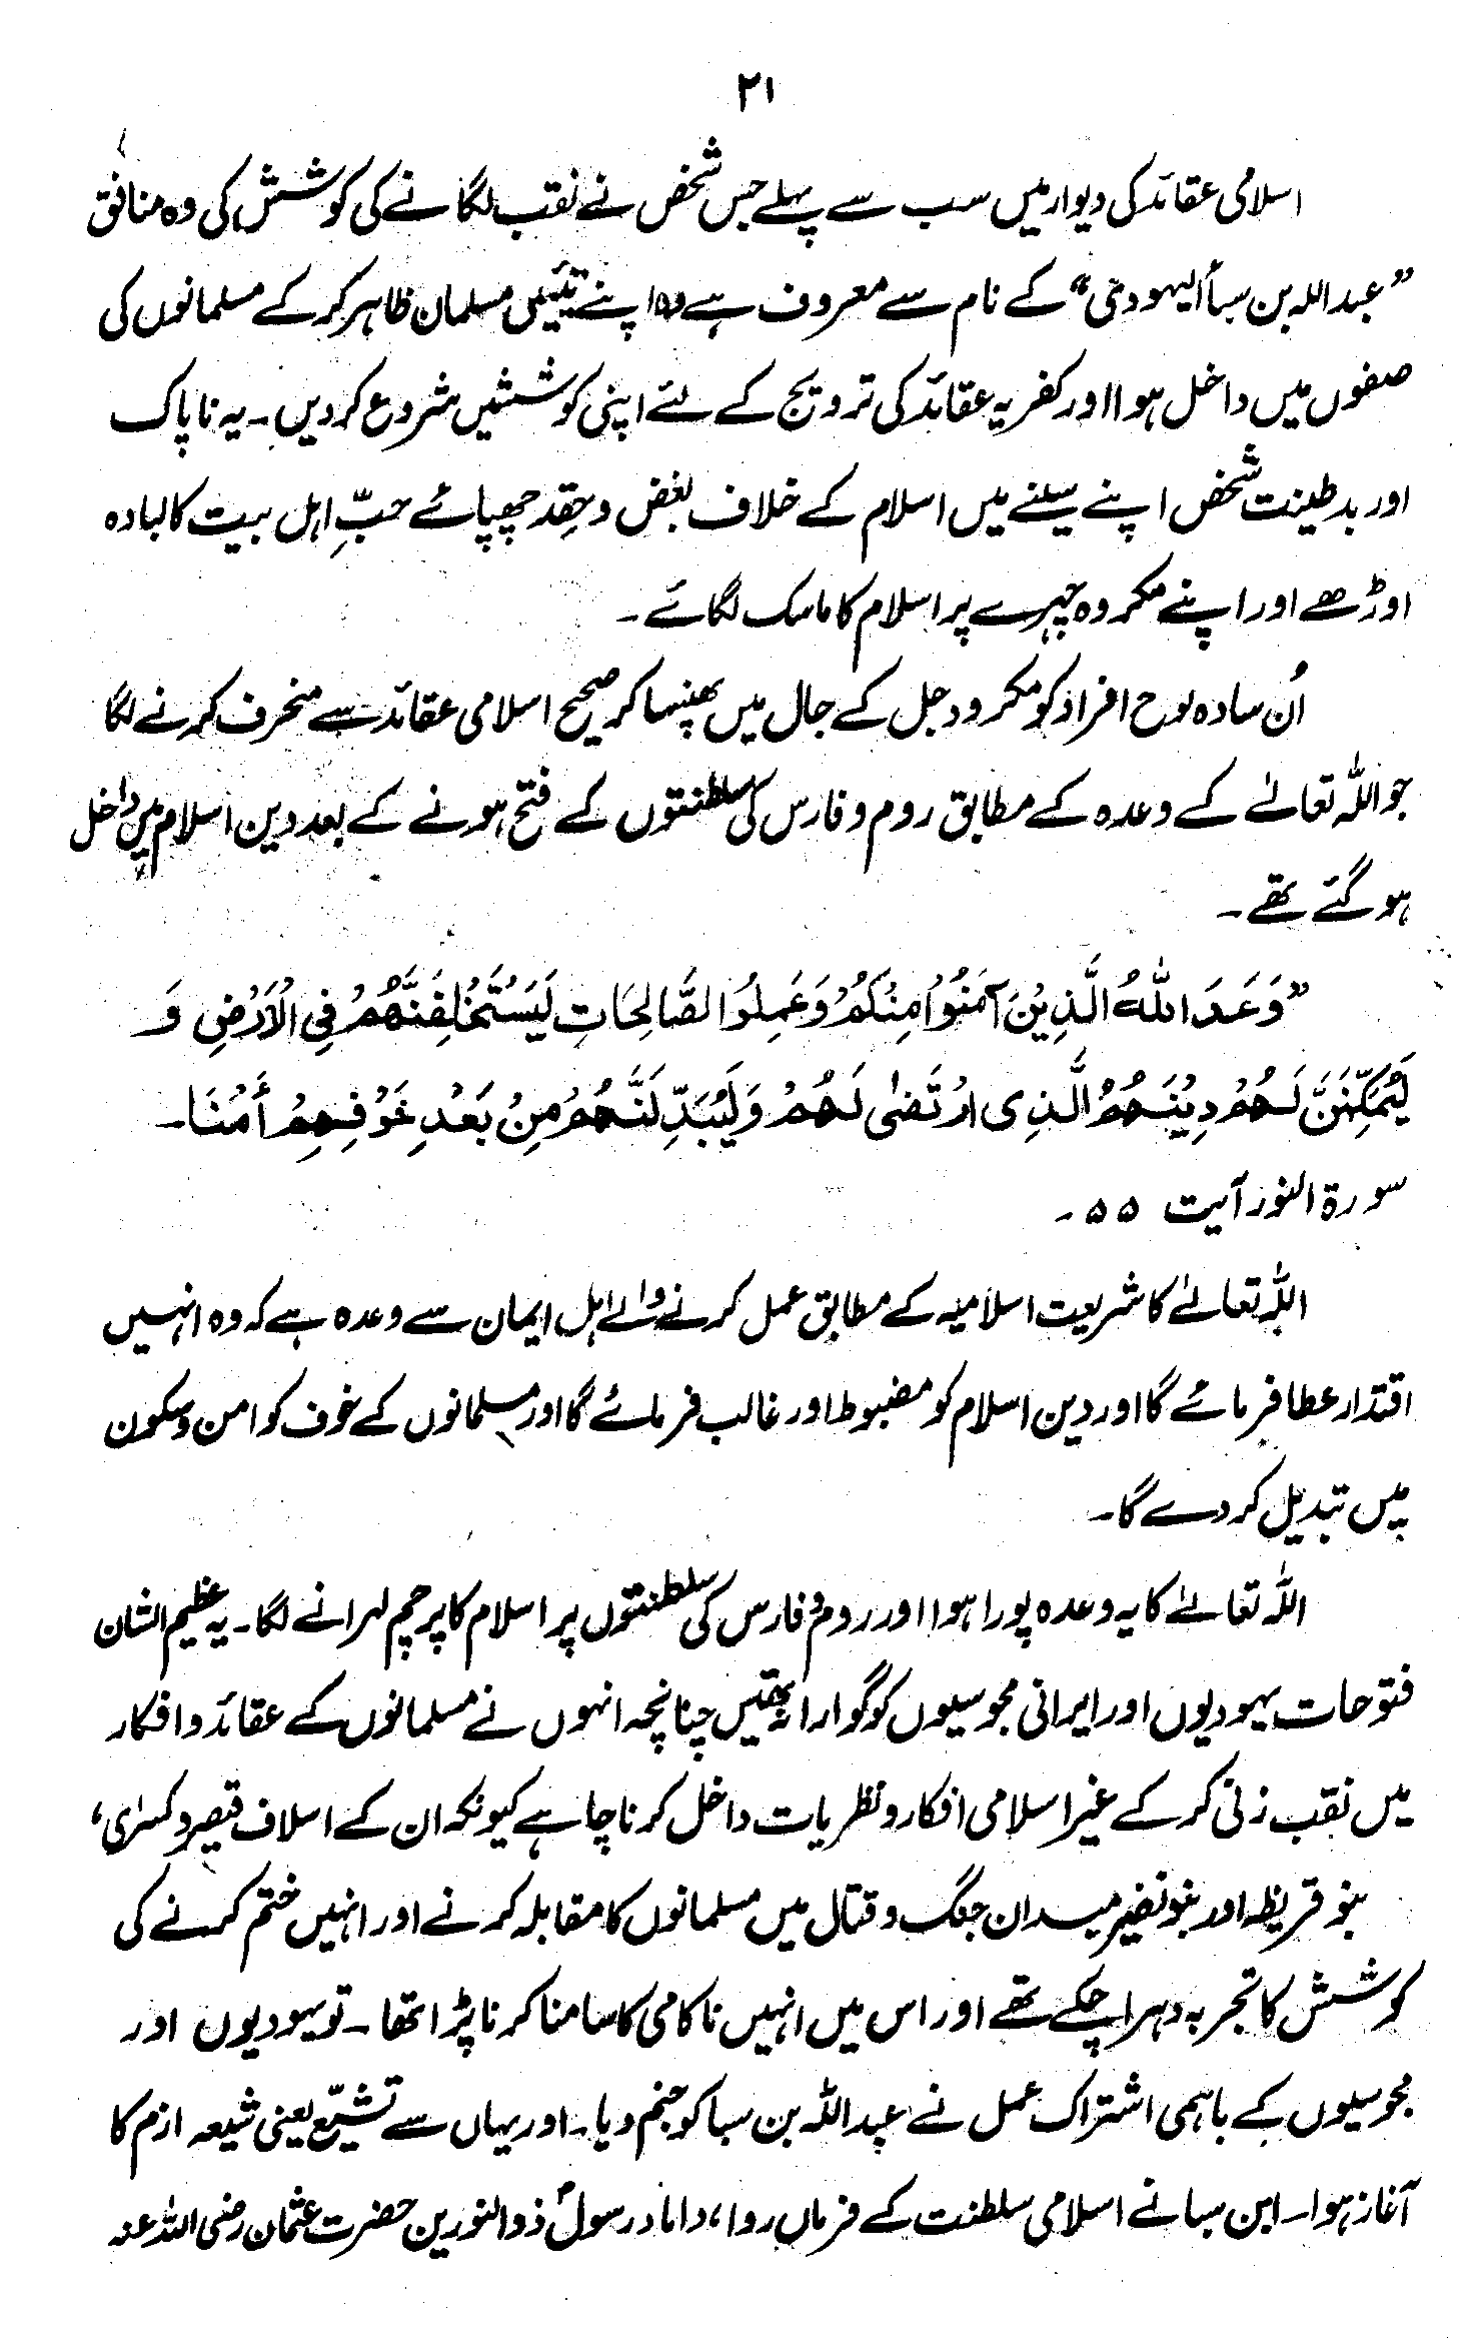 ۲۱
اسلامی عقائد کی دیوار میں سب سے پہلے جس شخص نے نقب لگانے کی کوشش کی وہ منافق
”عبداللہ بن سبأ الیہودی“ کے نام سے معروف ہے وہ اپنے تئیں مسلمان ظاہر کر کے مسلمانوں کی
صفوں میں داخل ہوا اور کفریہ عقائد کی ترویج کے لئے اپنی کوششیں شروع کر دیں۔ یہ ناپاک
اور بد طینت شخص اپنے سینے میں اسلام کے خلاف بغض و حِقد چھپائے حبِّ اہل بیت کا لبادہ
اوڑھے اور اپنے مکروہ چہرے پر اسلام کا ماسک لگائے۔
اُن سادہ لوح افراد کو مکر و دجل کے جال میں پھنسا کر صحیح اسلامی عقائد سے منحرف کرنے لگا
جو اللہ تعالےٰ کے وعدہ کے مطابق روم و فارس کی سلطنتوں کے فتح ہونے کے بعد دین اسلام میں داخل
ہو گئے تھے۔
”وَعَدَ اللّٰهُ الَّذِيْنَ آمَنُوْا مِنْكُمْ وَعَمِلُوا الصَّالِحَاتِ لَيَسْتَخْلِفَنَّهُمْ فِی الْاَرْضِ وَ
لَيُمَكِّنَنَّ لَهُمْ دِيْنَهُمُ الَّذِی ارْتَضٰی لَهُمْ وَلَيُبَدِّلَنَّهُمْ مِنْ بَعْدِ خَوْفِهِمْ أَمْنَا۔
سورة النور آیت ۵۵۔
اللہ تعالےٰ کا شریعت اسلامیہ کے مطابق عمل کرنے والے اہل ایمان سے وعدہ ہے کہ وہ انہیں
اقتدار عطا فرمائے گا اور دین اسلام کو مضبوط اور غالب فرمائے گا اور مسلمانوں کے خوف کو امن و سکون
میں تبدیل کر دے گا۔
اللہ تعالےٰ کا یہ وعدہ پورا ہوا اور روم و فارس کی سلطنتوں پر اسلام کا پرچم لہرانے لگا۔ یہ عظیم الشان
فتوحات یہودیوں اور ایرانی مجوسیوں کو گوارا نہ تھیں چنانچہ انہوں نے مسلمانوں کے عقائد و افکار
میں نقب زنی کر کے غیر اسلامی افکار و نظریات داخل کرنا چاہے کیونکہ ان کے اسلاف قیصر و کسرٰی،
بنو قریظہ اور بنو نضیر میدان جنگ و قتال میں مسلمانوں کا مقابلہ کرنے اور انہیں ختم کرنے کی
کوشش کا تجربہ دہرا چکے تھے اور اس میں انہیں ناکامی کا سامنا کرنا پڑا تھا۔ تو یہودیوں اور
مجوسیوں کے باہمی اشتراک عمل نے عبداللہ بن سبا کو جنم دیا۔ اور یہاں سے تشیّع یعنی شیعہ ازم کا
آغاز ہوا۔ ابن سبا نے اسلامی سلطنت کے فرماں روا، داماد رسولؐ ذوالنورین حضرت عثمان رضی اللہ عنہ